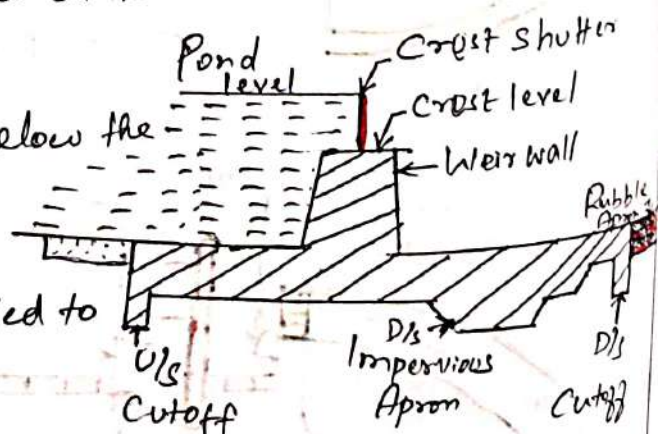 Crest Shutter
Pond
level
Crest level
elow the
Weir wall
Rubble
Apron
ed to
U/s
Cutoff
D/s
Impervious
Apron
D/s
Cutoff